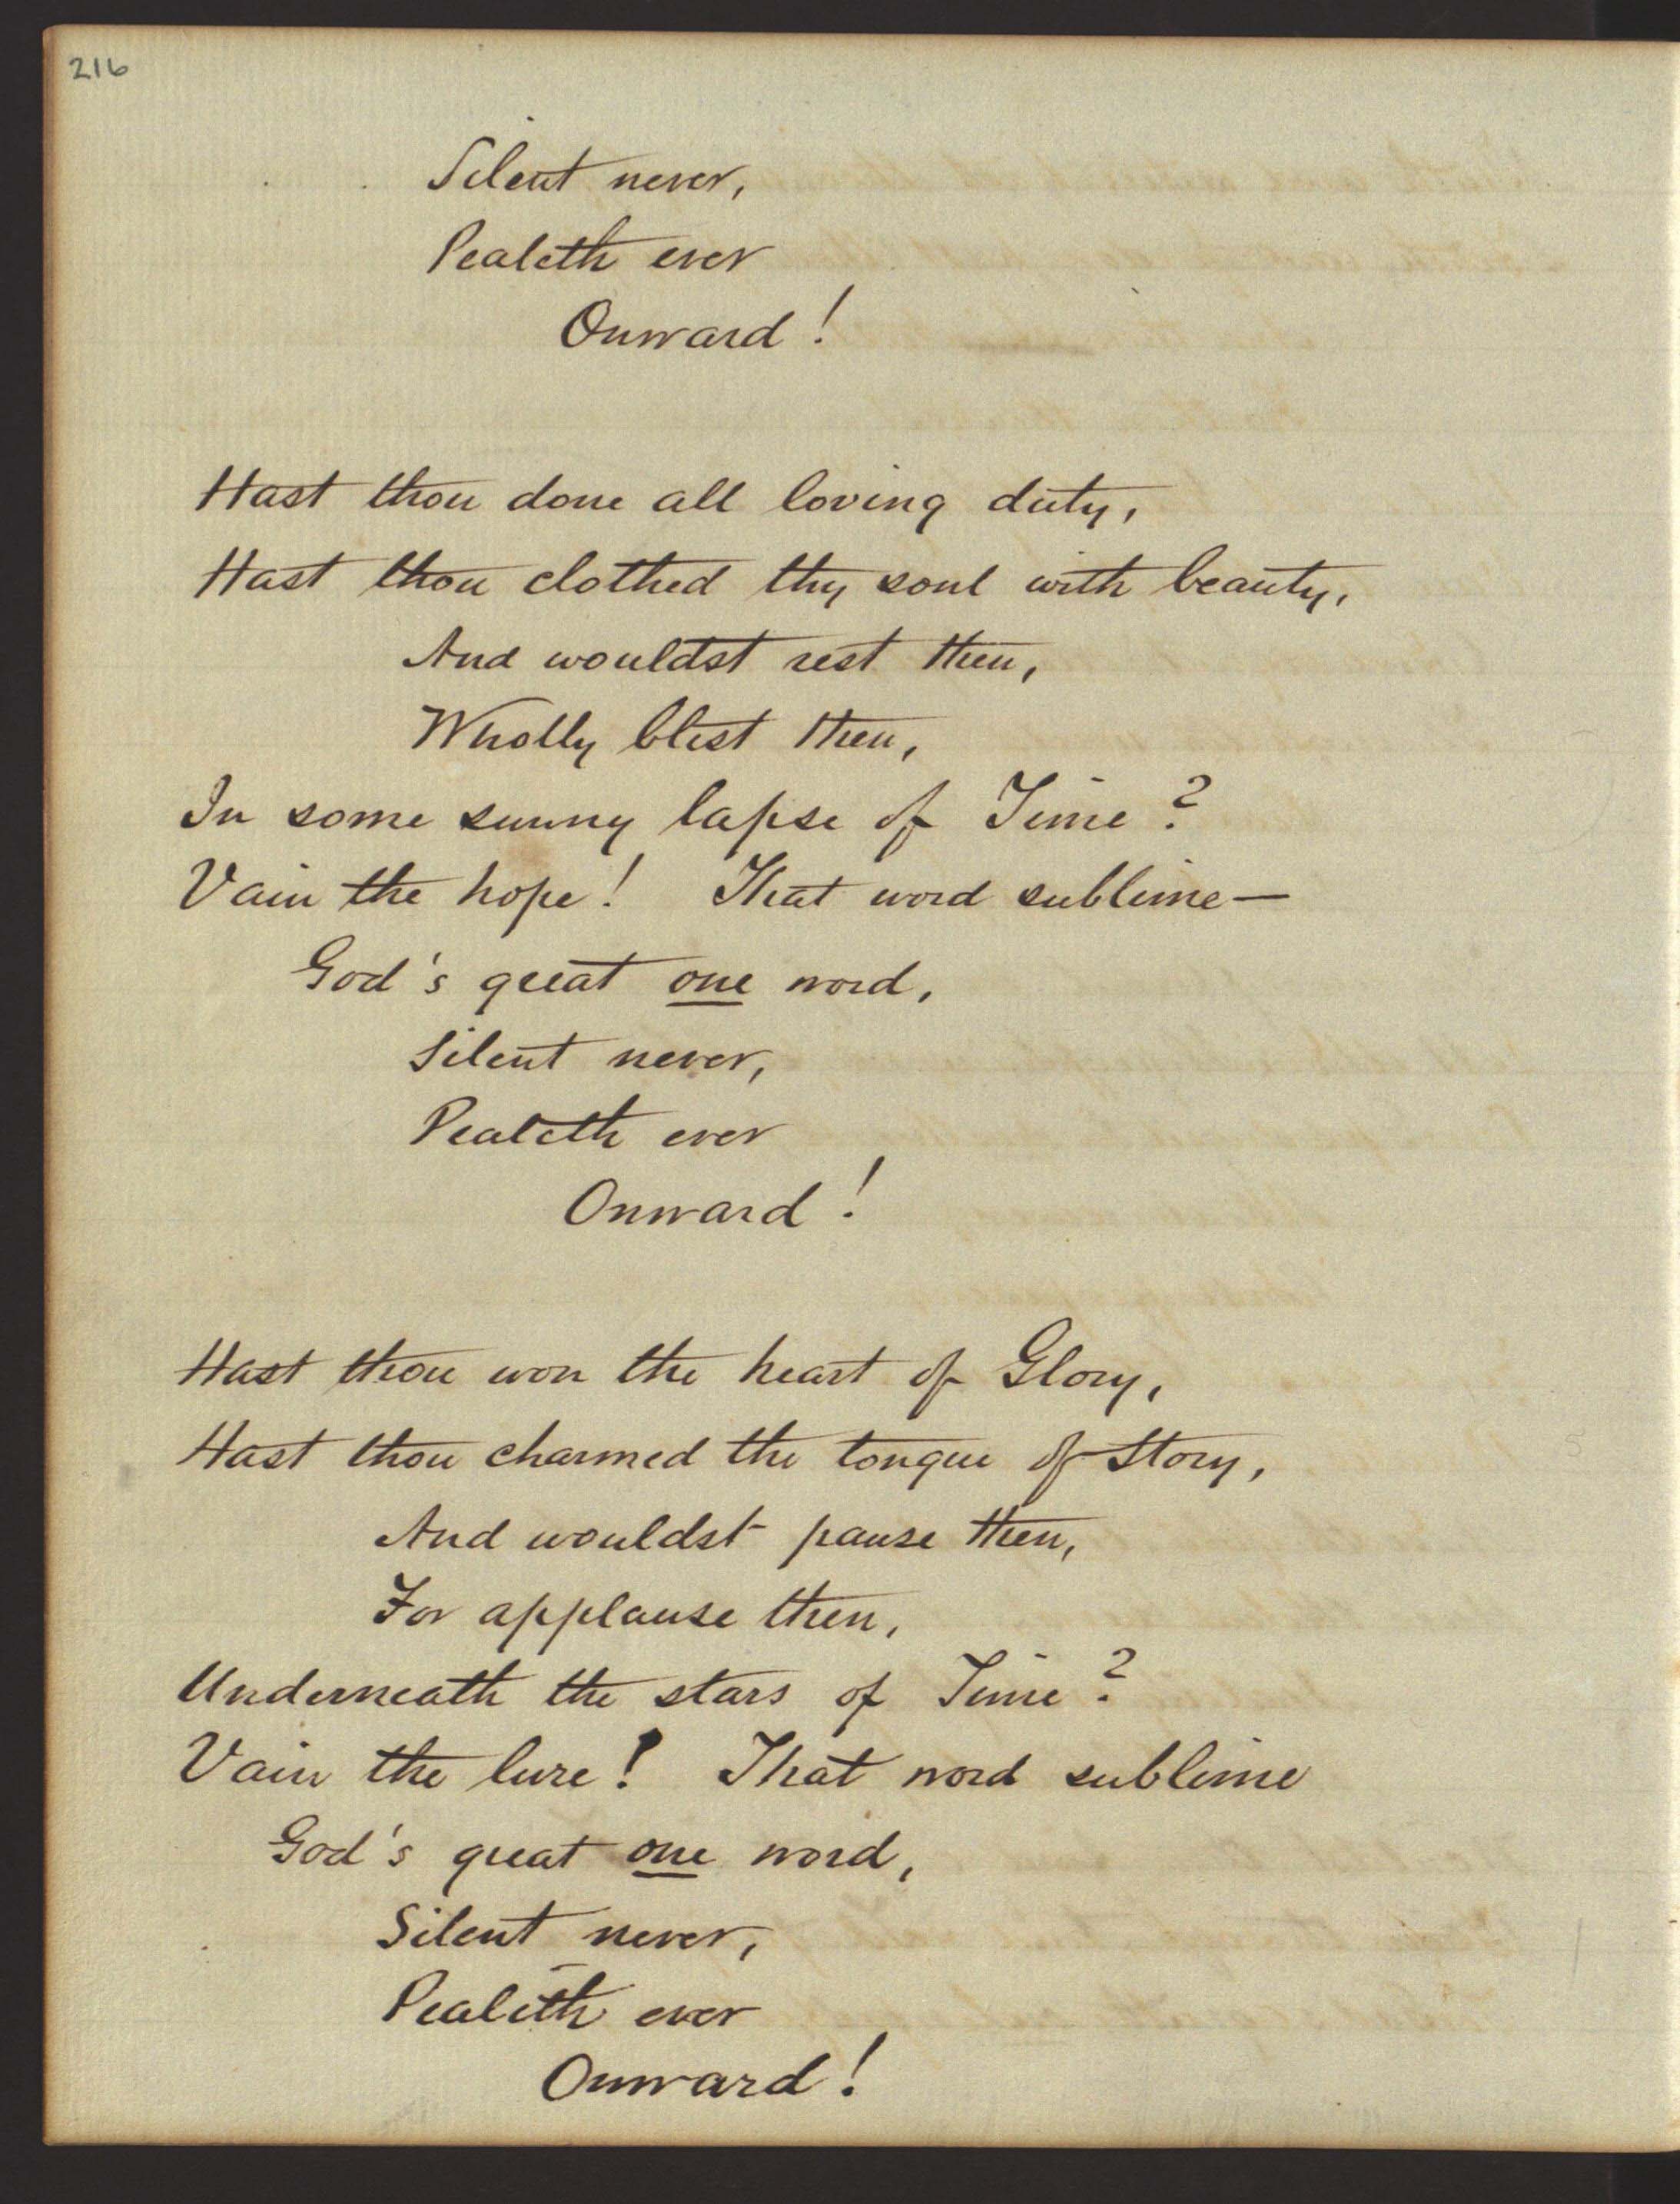 216
Silent never,
Pealeth ever
Onward!
Hast thou done all loving duty,
Hast thou clothed thy soul with beauty,
And wouldst rest then,
Wholly blest then,
In some sunny lapse of Time?
Vain the hope! That word sublime—
God's great one word,
Silent never,
Pealeth ever
Onward!
Hast thou won the heart of Glory,
Hast thou charmed the tongue of Story,
And wouldst pause then,
For applause then,
Underneath the stars of Time?
Vain the lure! That word sublime
God's great one word,
Silent never,
Pealeth ever
Onward!